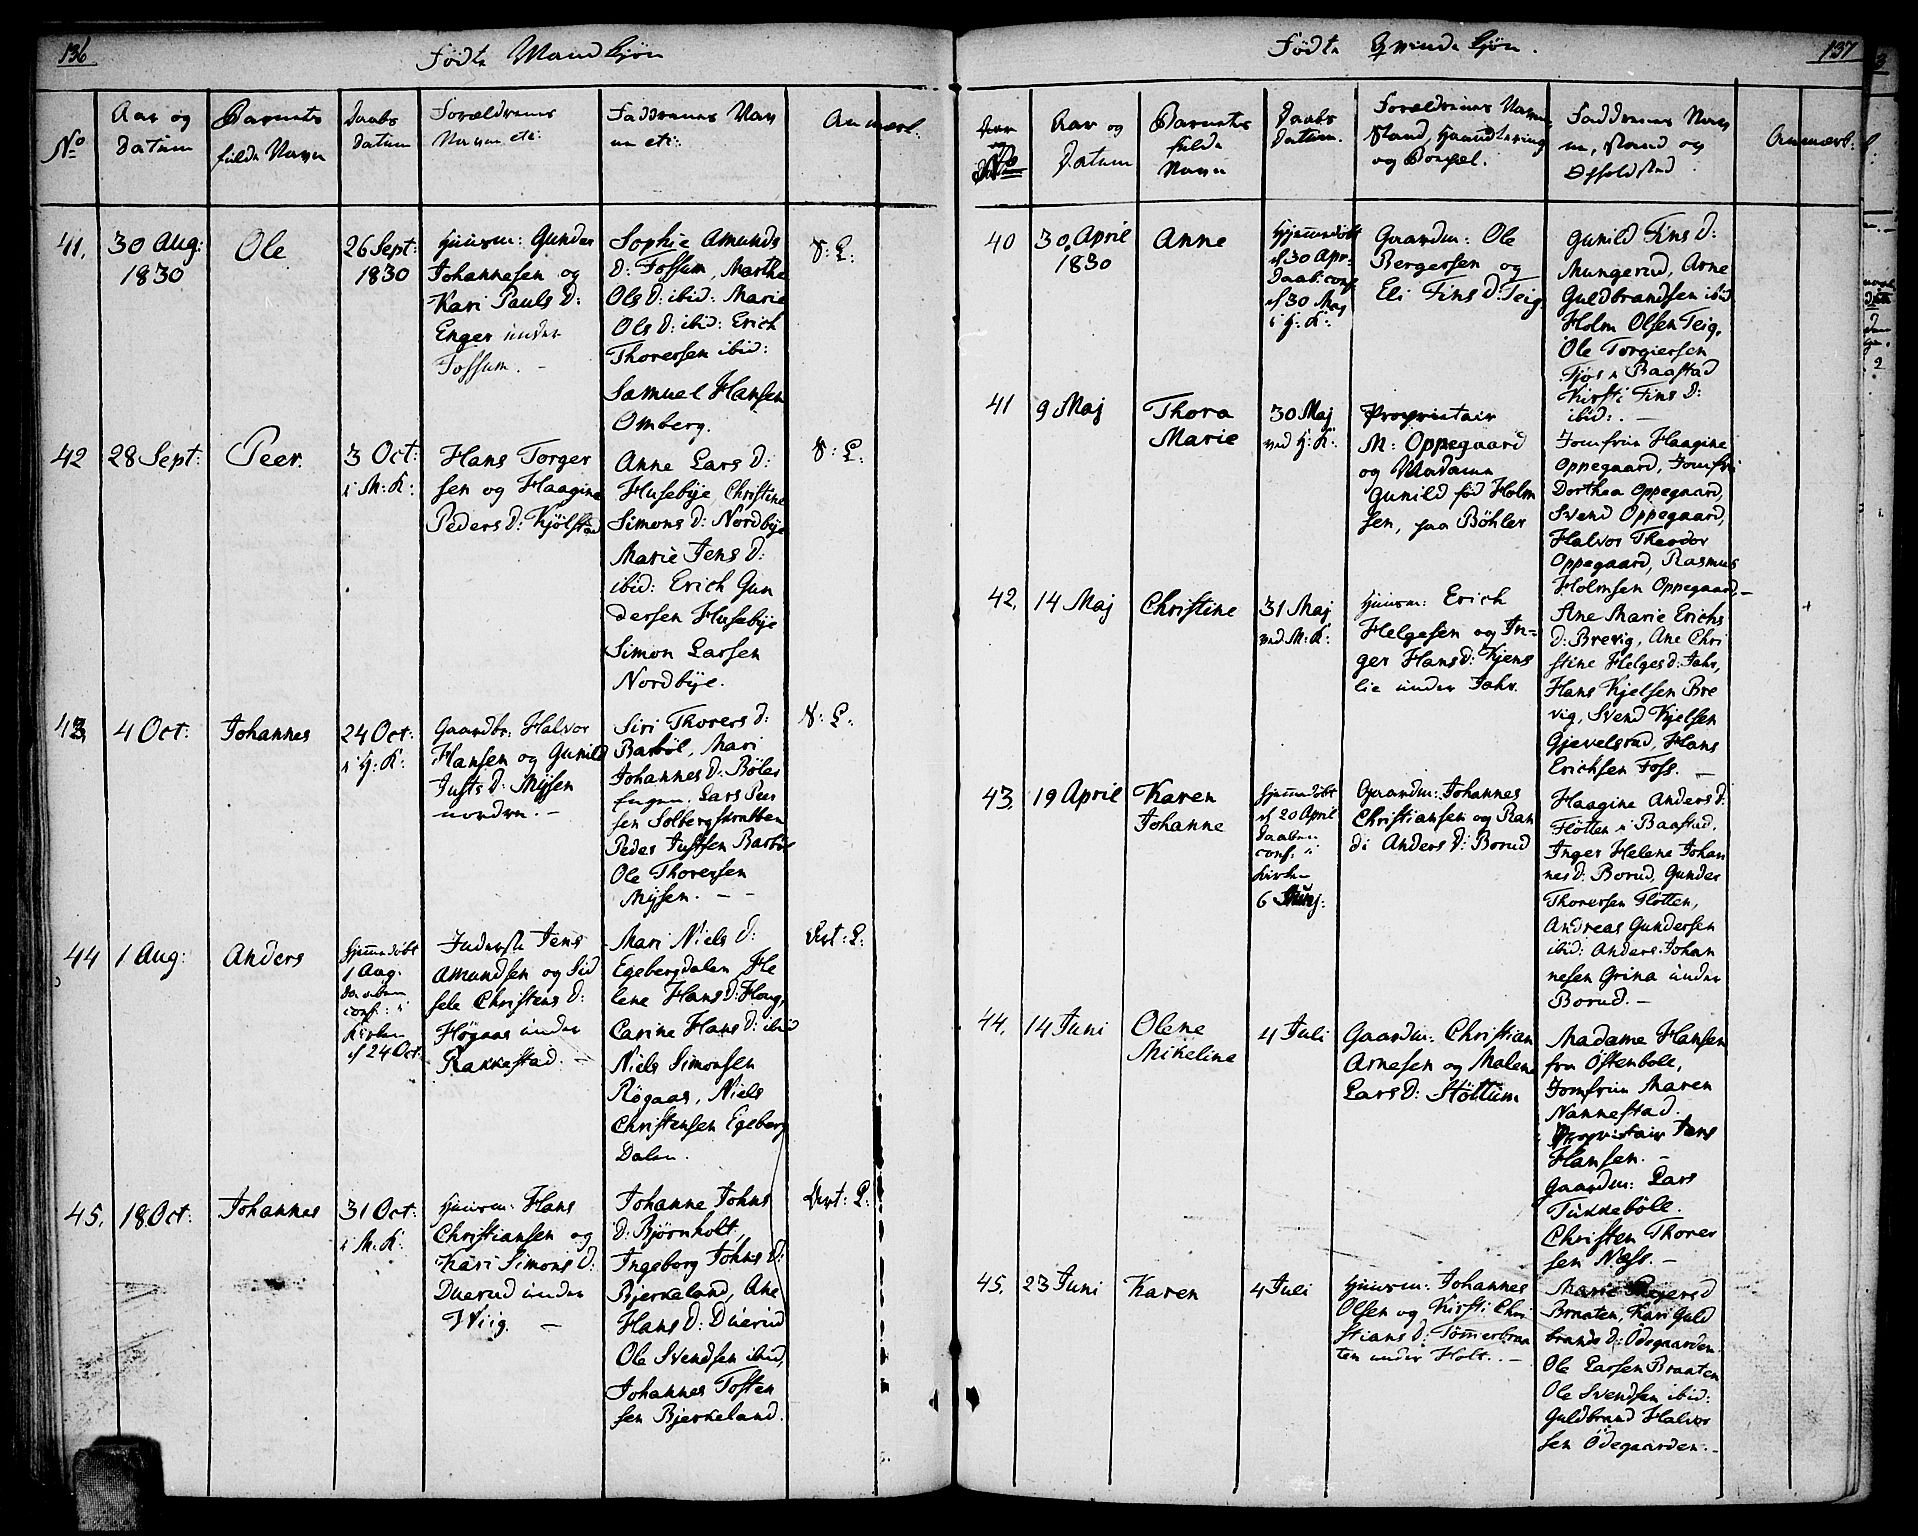 136
Födte Mandkjön
No
Aar og
Datum
Barnets
fulde Navn
Daabs
datum
Forældrenes
Navne etc:
Faddernes Nav
ne etc:
Anmærk:
41.
30 Aug:
1830
Ole
26 Sept:
1830
Huusm: Gunder
Johannesen og
Kari Pauls D:
Enger under
Fossum. -
Sophie Amunds
D: Fossum, Marthe
Ols D: ibid: Marie
Ols D: ibid: Erich
Thoresen ibid:
Samuel Hansen
Omberg.
V: L:
42
28 Sept:
Peer.
3 Oct:
i M: K:
Hans Torger
sen og Haagine
Peders D: Kjölstad
Anne Lars D:
Husebÿe, Christine
Simons D: Nordbÿe
Marie Jens D:
ibid: Erich Gun
dersen Husebÿe
Simon Larsen
Nordbÿe.
V: L:
43
4 Oct:
Johannes
24 Oct:
i H: K:
Gaardbr: Halvor
Hansen og Gunild
Justs D: Mÿsen
nordre. -
Siri Thorers D:
Barböl, Mari
Johannes D: Böler
Engen. Lars Peer
sen Solbergskrabben
Peder Justsen Barböl
Ole Thoresen
Mÿsen. -
V: L:
44
1 Aug:
Anders
Hjemmedöbt
1 Aug.
Daaben
conf: i
Kirken
d 24 Oct.
Inderste Jens
Amundsen og Sid
sele Christens D:
Högaas under
Rakkestad. -
Mari Niels D:
Egebergdalen, He
lene Hans D: Houg,
Carine Hans D: ibid
Niels Simonsen
Högaas, Niels
Christensen Egeberg
Dalen.
Vert: L:
45.
18 Oct:
Johannes
31 Oct:
i M: K:
Huusm: Hans
Christiansen og
Kari Simons D:
Duerud under
Hviig. -
Johanne Johns
D: Björnholt,
Ingeborg Johns D:
Bjerkeland, Ane
Hans D: Duerud
Ole Svendsen ibid,
Johannes Tosten
sen Bjerkeland.
Vert: L:
137
Födte Qvindekjön.
No
Aar og
Datum
Barnets
fulde
Navn
Daabs
datum.
Forældrenes Navn,
Stand, Haandtering
og Bopæl.
Faddernes Nav
n, Stand og
Opholdsted.
Anmærk:
40
30 April
1830
Anne
Hjemmedöbt
d 30 Apr.
Daab: conf.
d 30 Maj
i H: K:
Gaardm: Ole
Bergersen og
Eli Fins D: Teig.
Gunild Fins D:
Mungerud, Arne
Guldbrandsen ibid
Holm Olsen Teig,
Ole Torgiersen
Fjös i Baastad
Kirsti Fins D:
ibid: -
41
9 Maj
Thora
Marie
30 Maj
ved H: K:
Proprietair
M: Oppegaard
og Madame
Gunild föd Holm
sen, paa Böhler
Jomfrue Haagine
Oppegaard, Jomfru
Dorthea Oppegaard,
Svend Oppegaard,
Halvor Theodor
Oppegaard, Rasmus
Holmsen Oppegaard. -
42.
14 Maj
Christine
31 Maj
ved M: K:
Huusm: Erich
Helgesen og In-
ger Hans D: Kjens
lie under Jahr.
Ane Marie Erichs
D: Brevig, Ane Chri
stine Helges D: Jahr,
Hans Kjelsen Bre
vig, Svend Kjelsen
Gjevelsrud, Hans
Erichsen Foss. -
43.
19 April
Karen
Johanne
Hjemmedöbt
d 20 April
Daaben
conf: i
Kirken
6 Junj:
Gaardm: Johannes
Christiansen og Ran
di Anders D: Borud
Haagine Anders D:
Flötten i Baastad.
Inger Helene Johan
nes D: Borud, Gunder
Thoresen Flötten,
Andreas Gundersen
ibid: Anders Johan
nesen Grina under
Borud. -
44.
14 Juni
Olene
Mikeline
4 Juli
Gaardm: Christian
Arnesen og Malene
Lars D: Stöttum
Madame Hansen
fra Östenböle,
Jomfrue Maren
Nannestad.
Proprietair Jens
Hansen. -
Gaardm: Lars
Tukkeböle.
Christen Thorer
sen Næss. -
45.
23 Juni
Karen
4 Juli
Huusm: Johannes
Olsen og Kirsti Chri
stians D: Tömmerbraa
ten under Holt. -
Marie D
Braaten, Kari Guld
brands D: Ödegaarden.
Ole Larsen Braaten
Ole Svendsen ibid:
Guldbrand Halvor
sen Ödegaarden. -